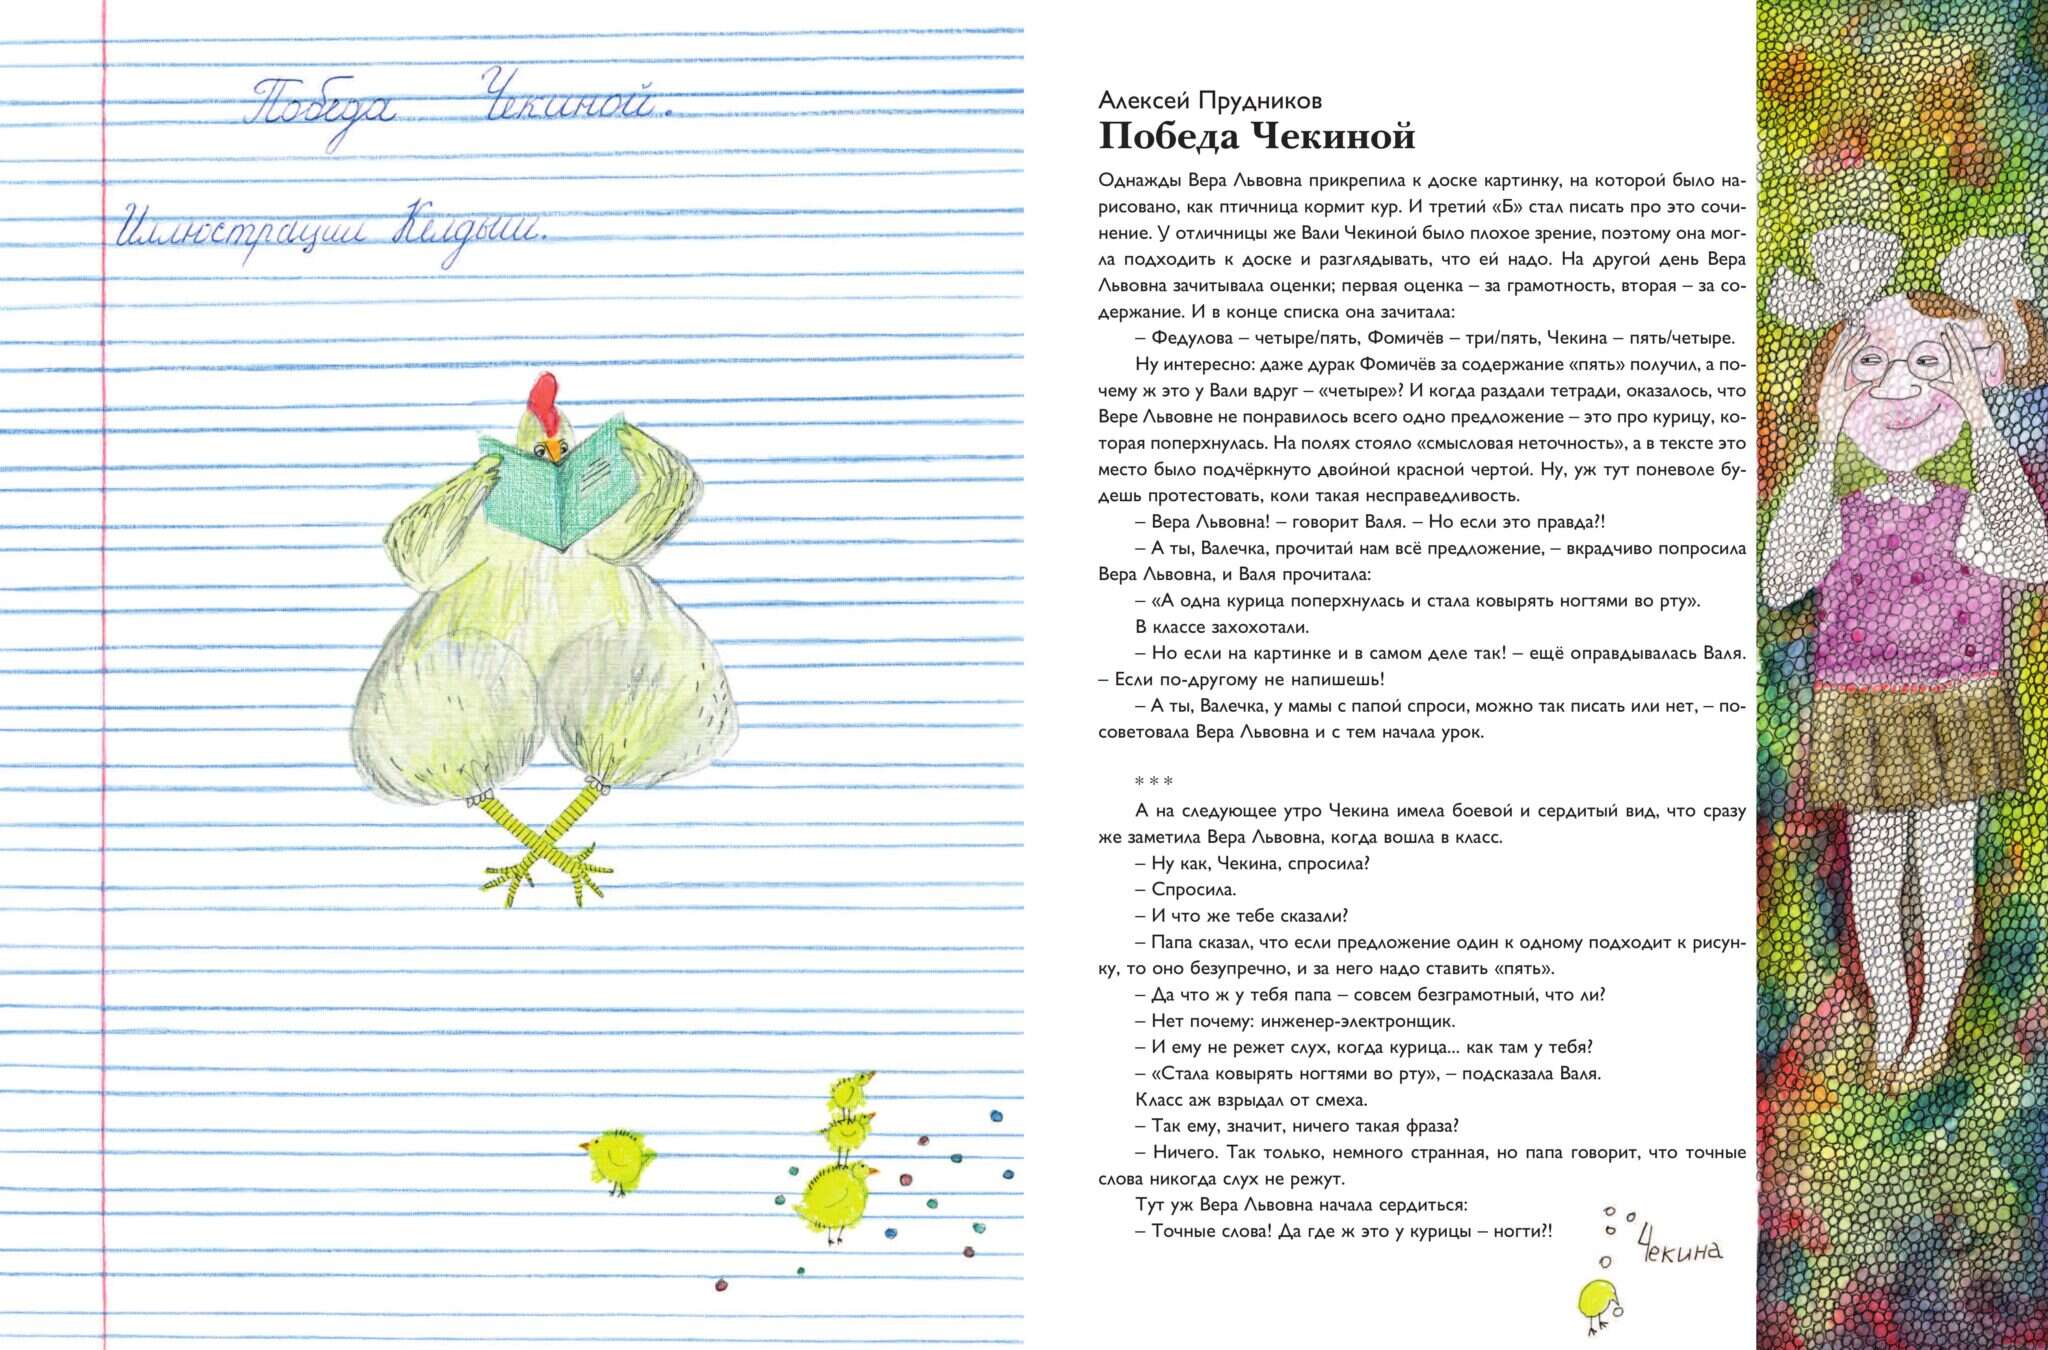 Победа Чекиной.
Иллюстрации Келдыш.
Алексей Прудников
Победа Чекиной
Однажды Вера Львовна прикрепила к доске картинку, на которой было на-
рисовано, как птичница кормит кур. И третий «Б» стал писать про это сочи-
нение. У отличницы же Вали Чекиной было плохое зрение, поэтому она мог-
ла подходить к доске и разглядывать, что ей надо. На другой день Вера
Львовна зачитывала оценки; первая оценка – за грамотность, вторая – за со-
держание. И в конце списка она зачитала:
– Федулова – четыре/пять, Фомичёв – три/пять, Чекина – пять/четыре.
Ну интересно: даже дурак Фомичёв за содержание «пять» получил, а по-
чему ж это у Вали вдруг – «четыре»? И когда раздали тетради, оказалось, что
Вере Львовне не понравилось всего одно предложение – это про курицу, ко-
торая поперхнулась. На полях стояло «смысловая неточность», а в тексте это
место было подчёркнуто двойной красной чертой. Ну, уж тут поневоле бу-
дешь протестовать, коли такая несправедливость.
– Вера Львовна! – говорит Валя. – Но если это правда?!
– А ты, Валечка, прочитай нам всё предложение, – вкрадчиво попросила
Вера Львовна, и Валя прочитала:
– «А одна курица поперхнулась и стала ковырять ногтями во рту».
В классе захохотали.
– Но если на картинке и в самом деле так! – ещё оправдывалась Валя.
– Если по-другому не напишешь!
– А ты, Валечка, у мамы с папой спроси, можно так писать или нет, – по-
советовала Вера Львовна и с тем начала урок.
* * *
А на следующее утро Чекина имела боевой и сердитый вид, что сразу
же заметила Вера Львовна, когда вошла в класс.
– Ну как, Чекина, спросила?
– Спросила.
– И что же тебе сказали?
– Папа сказал, что если предложение один к одному подходит к рисун-
ку, то оно безупречно, и за него надо ставить «пять».
– Да что ж у тебя папа – совсем безграмотный, что ли?
– Нет почему: инженер-электронщик.
– И ему не режет слух, когда курица... как там у тебя?
– «Стала ковырять ногтями во рту», – подсказала Валя.
Класс аж взрыдал от смеха.
– Так ему, значит, ничего такая фраза?
– Ничего. Так только, немного странная, но папа говорит, что точные
слова никогда слух не режут.
Тут уж Вера Львовна начала сердиться:
– Точные слова! Да где ж это у курицы – ногти?!
Чекина